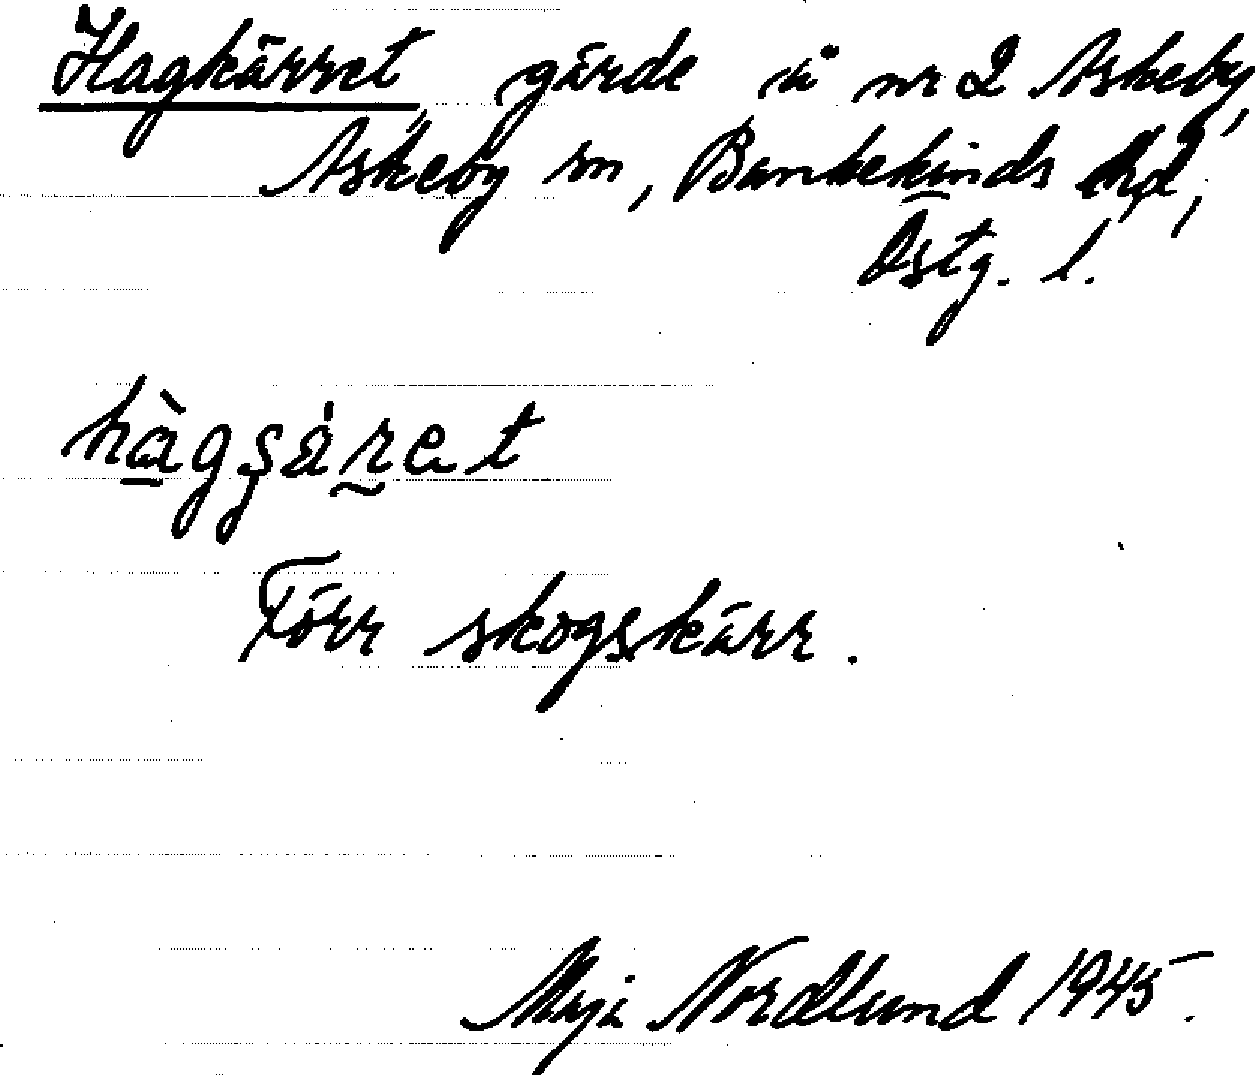 Hagkärret, gärde å nr 2 Askeby,
Askeby sn, Bankekinds hd,
Östg. l.
Förr skogskärr.
Maja Nordlund 1945.